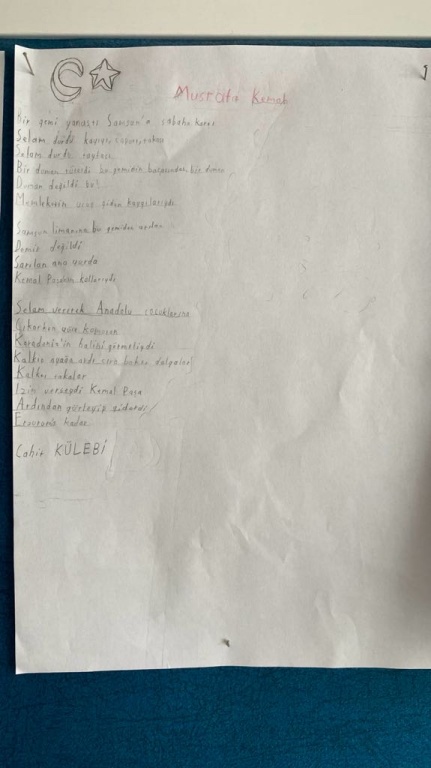 Mustafa Kemal
Bir gemi yanaştı Samsun'a sabaha karşı
Selam durdu kayığı, çaparı, takası
Selam durdu tayfası
Bir duman tüterdi bu geminin bacasından bir duman
Duman değildi bu
Memleketin uçup giden kaygılarıydı
Samsun limanına bu gemiden atılan
Demir değildi
Sarılan ana yurda
Kemal Paşanın kollarıydı
Selam vererek Anadolu çocuklarına
Çıkarken yüce kumandan
Karadeniz'in halini görmeliydi
Kalktı ayağa ardı sıra baktı dalgalar
Kalktı takalar
İzin verseydi Kemal Paşa
Ardından gürleyip giderdi
Erzurum'a kadar
Cahit KÜLEBİ